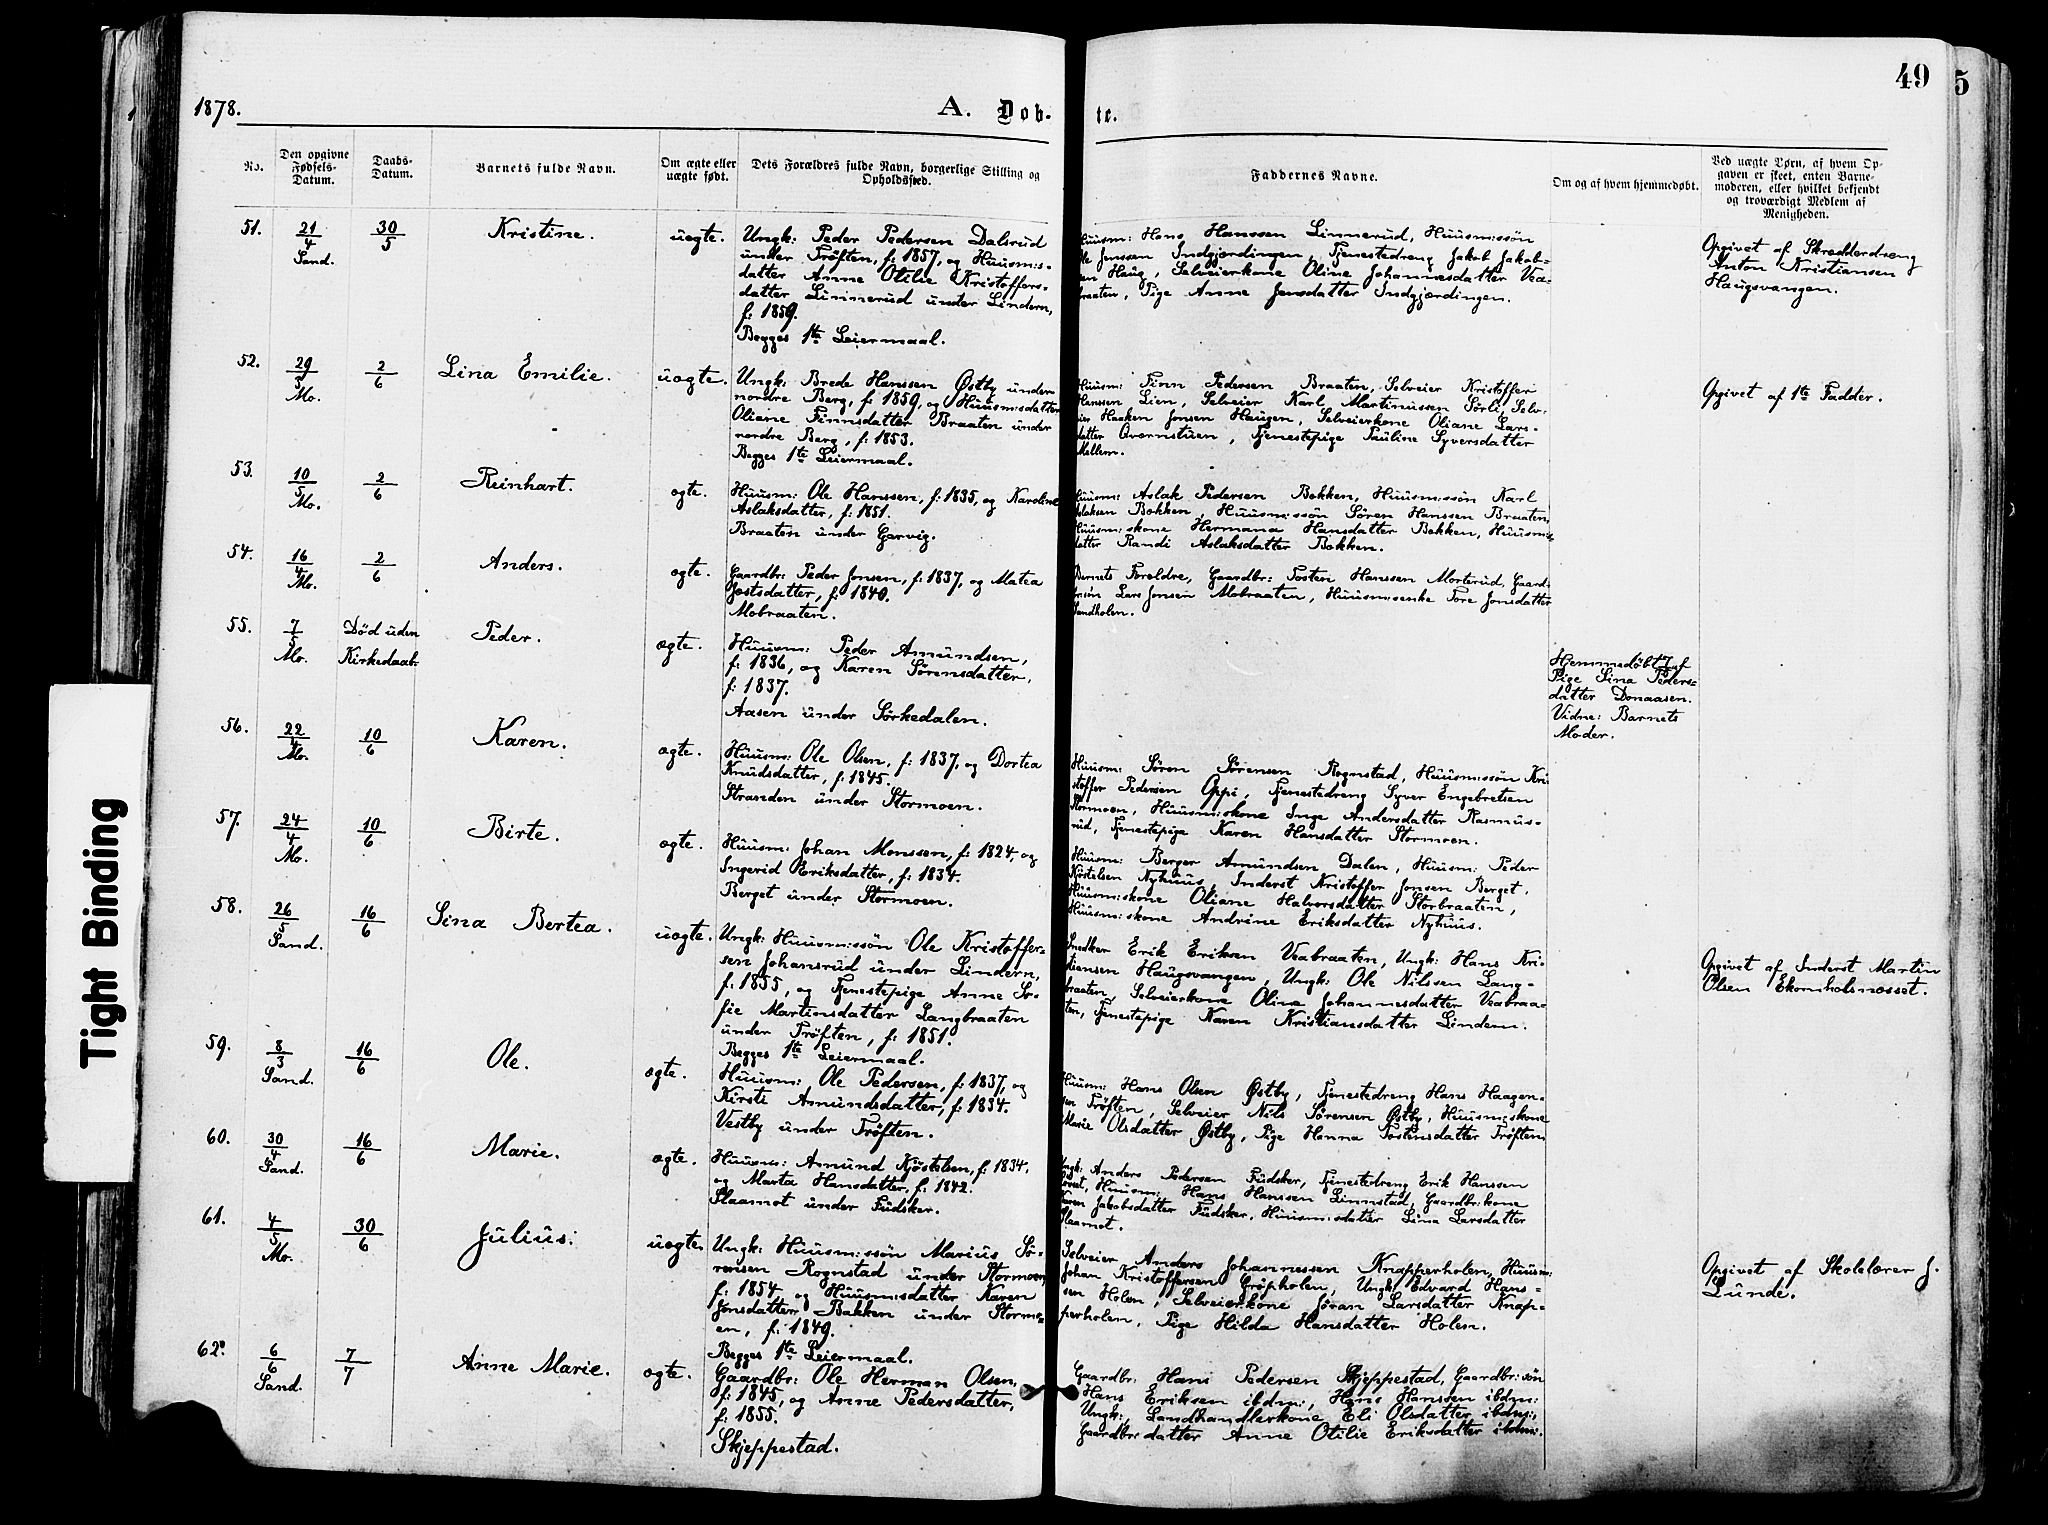 49
5
1878.
A. Døb-
te.
No.
Den opgivne
Fødsels-
Datum.
Daabs-
Datum.
Barnets fulde Navn.
Om ægte eller
uægte født.
Dets Forældres fulde Navn, borgerlige Stilling og
Opholdssted.
Faddernes Navne.
Om og af hvem hjemmedøbt.
Ved uægte Børn, af hvem Op-
gaven er skeet, enten Barne-
moderen, eller hvilket bekjendt
og troværdigt Medlem af
Menigheden.
51.
21/4
Sand.
30/5
Kristine.
uægte.
Ungk: Peder Pedersen Dalsrud
under Trøften, f: 1857, og Huusm:s-
datter Anne Otilie Kristoffers-
datter Linnerud under Lindern,
f: 1859.
Begges 1te Leiermaal.
Huusm: Hans Hanssen Linnerud, Huusm:ssøn
Ole Jenssen Indgjærdingen, Tjenestedreng Jakob Jakob-
sen Haug, Selveierkone Oline Johannesdatter Vea-
braaten, Pige Anne Jensdatter Indgjærdingen.
Opgivet af Skrædderdreng
Anton Kristiansen
Haugsvangen.
52.
29/5
Mo.
2/6
Lina Emilie.
uægte.
Ungk: Brede Hanssen Østby under
nordre Berg, f: 1859, og Huusm:sdatter
Oliane Finnsdatter Braaten under
nordre Berg, f: 1853.
Begges 1te Leiermaal.
Huusm: Finn Pedersen Braaten, Selveier Kristoffer
Hanssen Lien, Selveier Karl Martinussen Sørli, Selv-
eier Haaken Jonsen Haugen, Selveierkone Oliane Lars-
datter Qværnstuen, Tjenestepige Pauline Syversdatter
Mellem.
Opgivet af 1te Fadder.
53.
10/5
Mo.
2/6
Reinhart.
ægte.
Huusm: Ole Hanssen, f: 1835, og Karoline
Aslaksdatter, f: 1851.
Braaten under Garvig.
Huusm: Aslak Pedersen Bakken, Huusm:ssøn Karl
Aslaksen Bakken, Huusm:ssøn Søren Hanssen Braaten,
Huusm:skone Hermana Hansdatter Bakken, Huusm:s-
datter Randi Aslaksdatter Bakken.
54.
16/4
Mo.
2/6
Anders.
ægte.
Gaardbr: Peder Jonsen, f: 1837, og Matea
Jostsdatter, f: 1840.
Mobraaten.
Barnets Forældre, Gaardbr: Tosten Hanssen Morterud, Gaard-
br:søn Lars Jonsen Mobraaten, Huusm:senke Tore Jonsdatter
Sandholen.
55.
7/5
Mo.
Død uden
Kirkedaab.
Peder.
ægte.
Huusm: Peder Amundsen,
f: 1836, og Karen Sørensdatter,
f: 1837.
Aasen under Sørkedalen.
Hjemmedøbt 7/5 af
Pige Sina Peders-
datter Donaasen.
Vidne: Barnets
Moder.
56.
22/4
Mo.
10/6
Karen.
ægte.
Huusm: Ole Olsen, f: 1837, og Dortea
Knudsdatter, f: 1845.
Stranden under Stormoen.
Huusm: Søren Sørensen Rognstad, Huusm:ssøn Kri-
stoffer Pedersen Oppi, Tjenestedreng Syver Engebretsen
Stormoen, Huusm:skone Inge Andersdatter Rasmus-
rud, Tjenestepige Karen Hansdatter Stormoen.
57.
24/4
Mo.
10/6
Birte.
ægte.
Huusm: Johan Monssen, f: 1824, og
Ingerid Eriksdatter, f: 1834.
Berget under Stormoen.
Huusm: Berger Amundsen Dalen, Huusm: Peder
Kjøstelsen Nyhuus, Inderst Kristoffer Jonsen Berget,
Huusm:skone Oliane Halvorsdatter Storbraaten,
Huusm:skone Andrine Eriksdatter Nyhuus.
58.
26/5
Sand.
16/6
Sina Bertea.
uægte.
Ungk: Huusm:ssøn Ole Kristoffer-
sen Johansrud under Lindern,
f: 1855, og Tjenestepige Anne So-
fie Martinsdatter Langbraaten
under Trøften, f: 1851.
Begges 1te Leiermaal.
Snedker Erik Eriksen Veabraaten, Ungk: Hans Kri-
stiensen Haugsvangen, Ungk: Ole Nilssen Lang-
braaten, Selveierkone Oline Johannesdatter Veabraa-
ten, Tjenestepige Karen Kristiansdatter Lindern.
Opgivet af Inderst Martin
Olsen Ekornholsnæsset.
59.
8/3
Sand.
16/6
Ole.
ægte.
Huusm: Ole Pedersen, f: 1837, og
Kirsti Amundsdatter, f: 1834.
Vestby under Trøften.
Huusm: Hans Olsen Østby, Tjenestedreng Hans Haagen-
sen Trøften, Selveier Nils Sørensen Østby, Huusm:skone
Marie Olsdatter Østby, Pige Hanna Tostensdatter Trøften.
60.
30/4
Sand.
16/6
Marie.
ægte.
Huusm: Amund Kjøstelsen, f: 1834,
og Marta Hansdatter, f: 1842.
Plaamot under Fudsker.
Ungk: Anders Pedersen Fudsker, Tjenestedreng Erik Hanssen
Huusm: Hans Hanssen Linnstad, Gaardbr:kone
Karen Jakobsdatter Fudsker, Huusm:sdatter Lina Larsdatter
Plaamot.
61.
4/5
Mo.
30/6
Julius.
uægte.
Ungk: Huusm:ssøn Marius Sø-
rensen Rognstad under Stormoen,
f: 1854, og Huusm:sdatter Karen
Jonsdatter Bakken under Stormo-
en, f: 1849.
Begges 1te Leiermaal.
Selveier Anders Johannessen Knapperholen, Huusm:
Johan Kristoffersen Grøpholen, Ungk: Edvard Hans-
sen Holen, Selveierkone Jøran Larsdatter Knap-
perholen, Pige Hilda Hansdatter Holen.
Opgivet af Skolelærer J.
Lunde.
62.
6/6
Sand.
7/7
Anne Marie.
ægte.
Gaardbr: Ole Herman Olsen,
f: 1845, og Anne Pedersdatter,
f: 1855.
Skjeppestad.
Gaardbr: Hans Pedersen Skjeppestad, Gaardbr:søn
Hans Eriksen ibdm:, Hans Hanssen ibdm:
Ungk:, Landhandlerkone Eli Olsdatter ibdm:,
Gaardbr:datter Anne Otilie Eriksdatter ibdm:.
Tight Binding